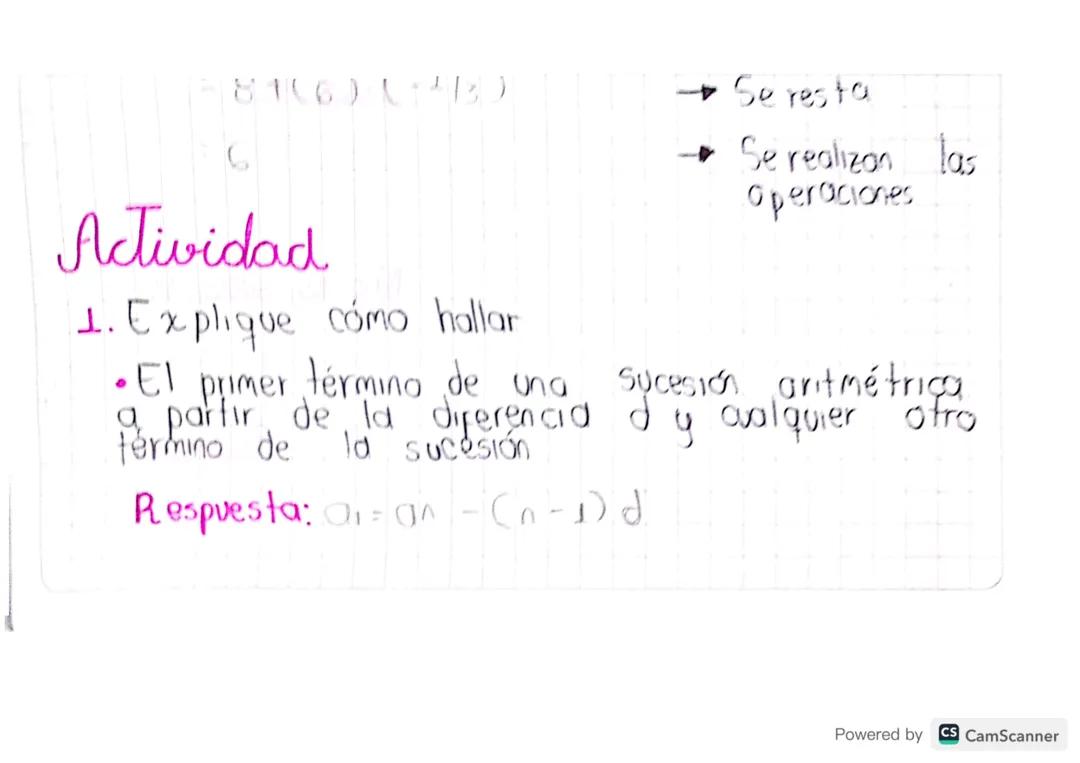 → Se resta
6
→ Se realizan las
operaciones
Actividad
1. Explique cómo hallar
• El primer término de una sucesión aritmétrica
a partir de la diferencia d y cualquier otro
término de la sucesión
Respuesta: a₁ = an - (n-1) d
Powered by CS CamScanner